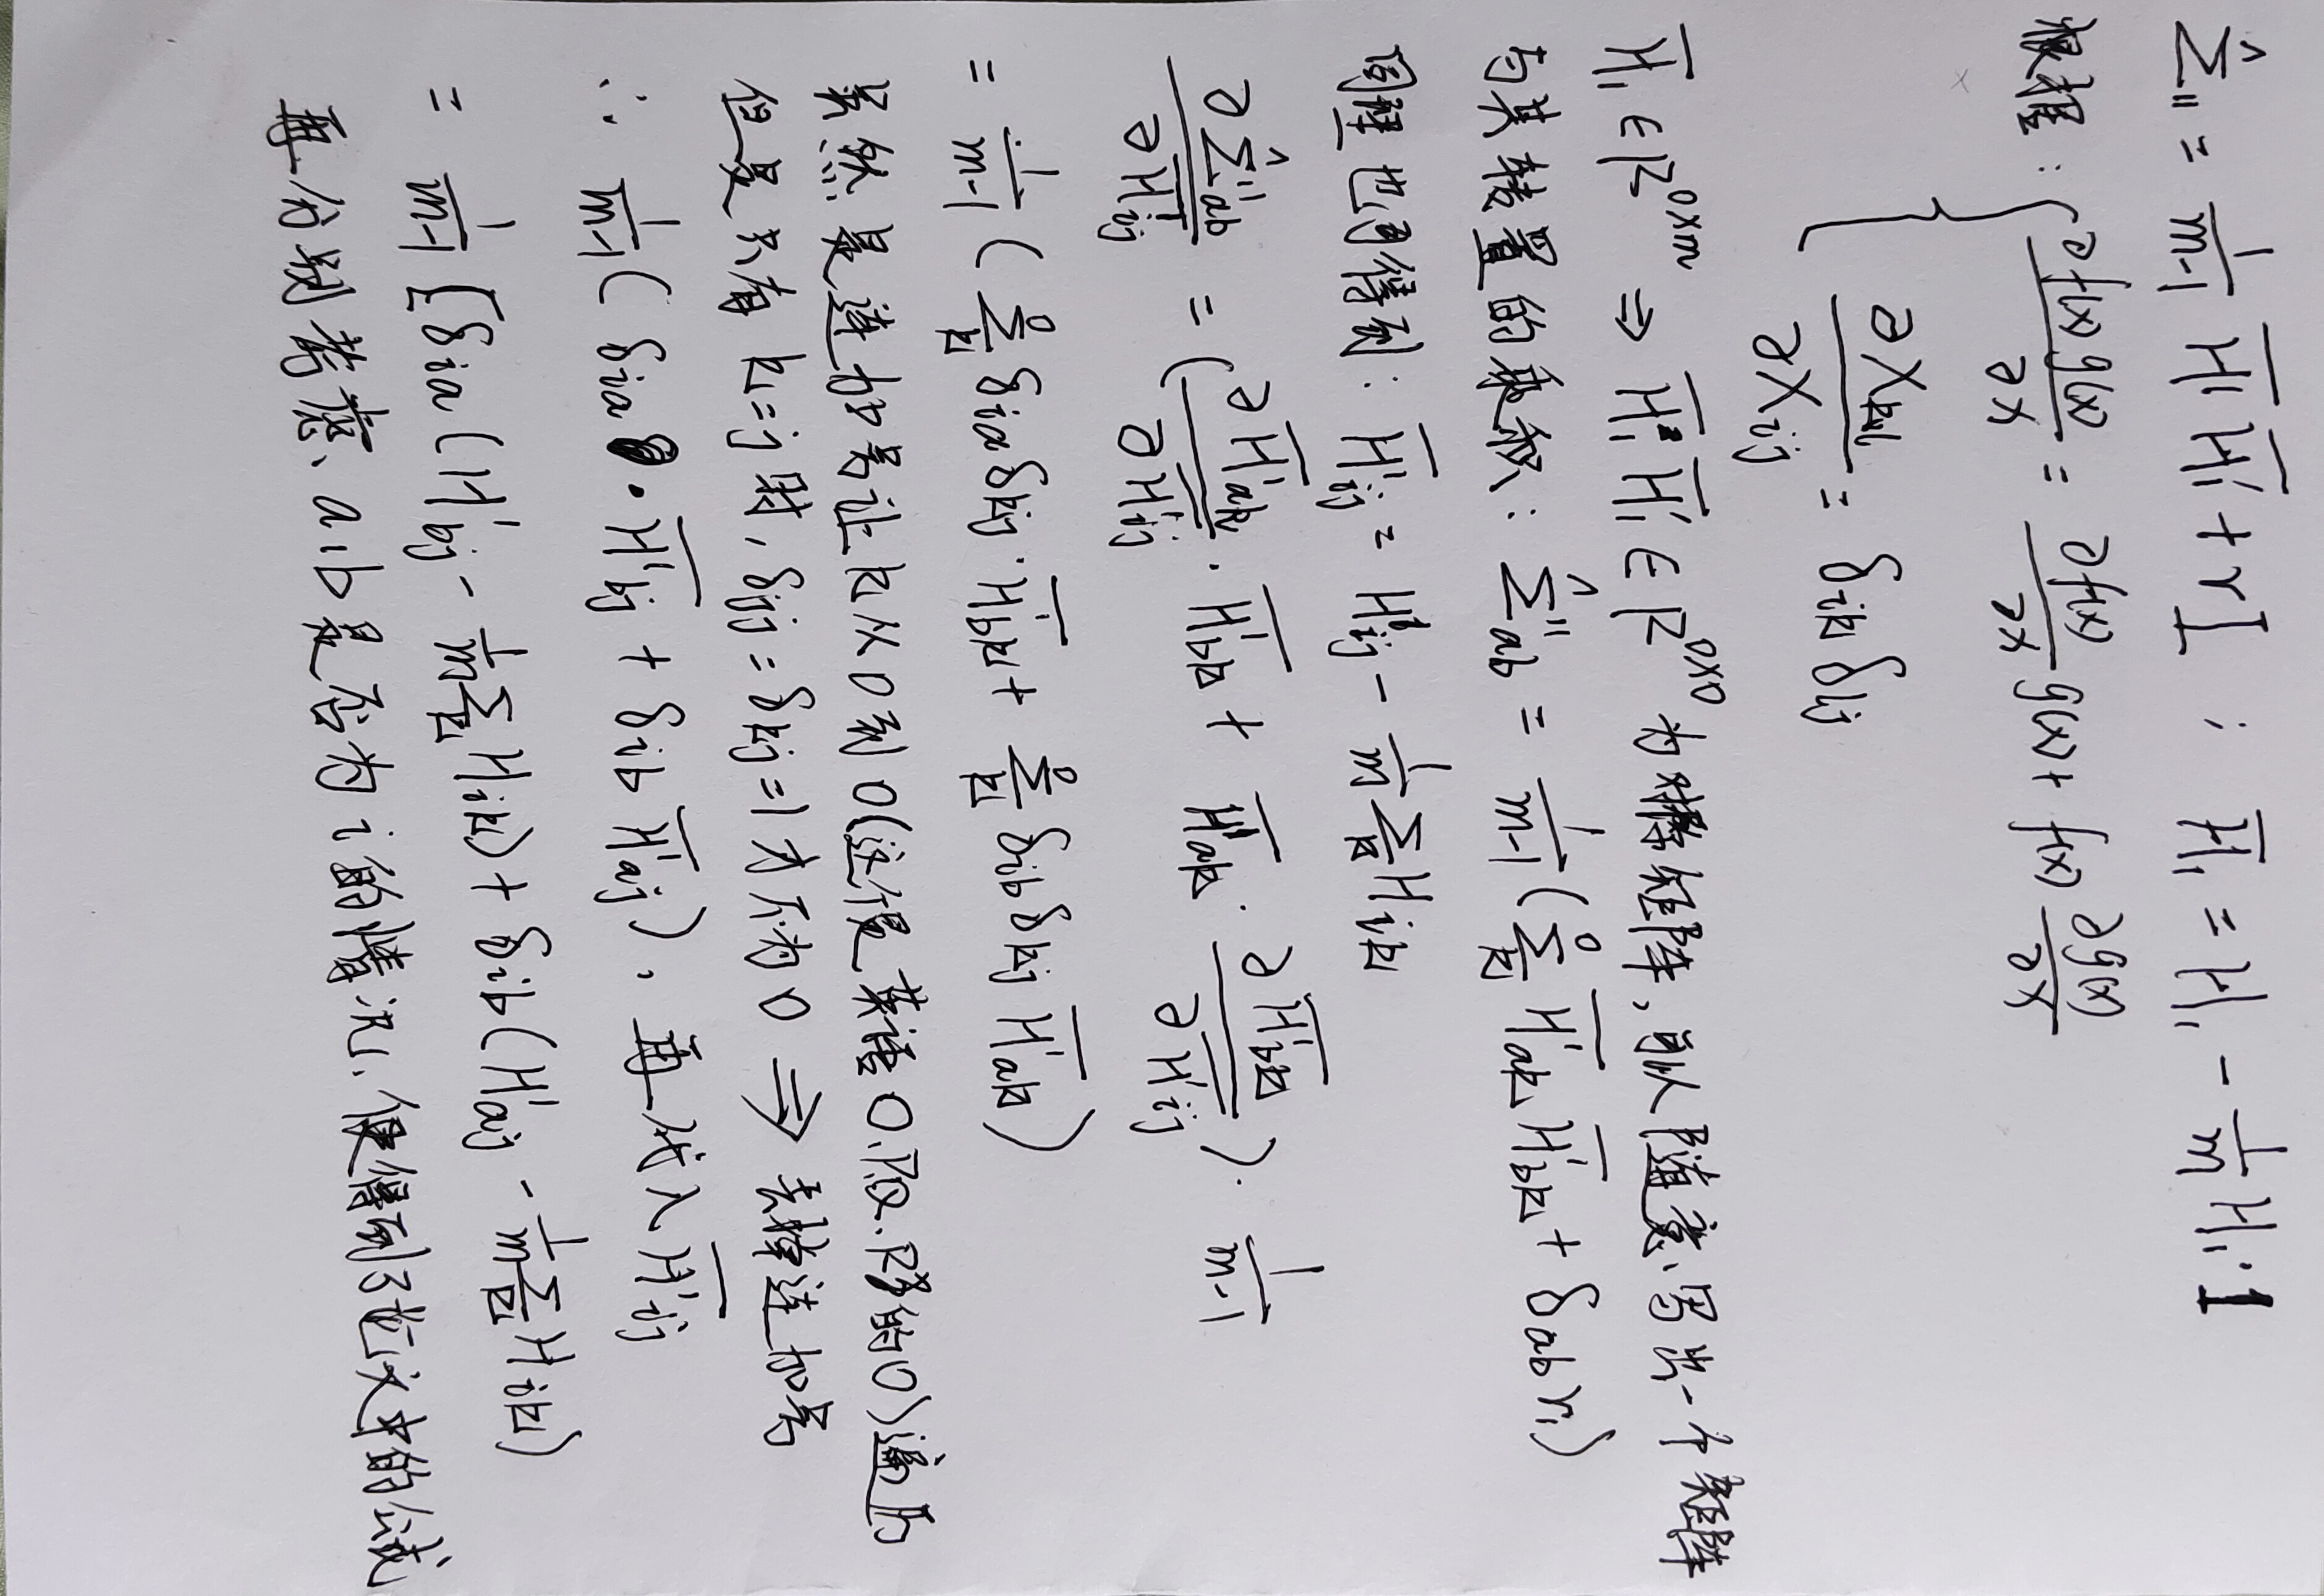 Σ̂₁₁ = 1/(m-1) H̄¹ H̄₁' + rI ; H̄₁ = H₁ - 1/m H₁·1
根据: { ∂f(x)g(x)/∂x = ∂f(x)/∂x g(x) + f(x) ∂g(x)/∂x
∂X_kl/∂X_ij = δ_ik δ_lj
H̄₁ ∈ R^{o×m} ⇒ H̄₁ H̄₁' ∈ R^{o×o} 为对称矩阵,可以随意写出一个矩阵
与其转置的乘积: Σ̂¹¹_ab = 1/(m-1) (Σ_k^o H̄¹_ak H̄¹_bk + δ_ab r₁)
同理也可得到: H̄¹_ij = H¹_ij - 1/m Σ_k H_ik
∂Σ̂¹¹_ab/∂H̄¹_ij = (∂H̄¹_ak/∂H̄¹_ij · H̄¹_bk + H̄¹_ak · ∂H̄¹_bk/∂H̄¹_ij) · 1/(m-1)
= 1/(m-1) (Σ_k^o δ_ia δ_kj · H̄¹_bk + Σ_k^o δ_ib δ_kj H̄¹_ak)
虽然是连加号让k从0到O(这个是英语O.P.Q.R的O)遍历
但是只有k=j时,δ_jj = δ_kj = 1才不为0 ⇒ 去掉连加号
∴ 1/(m-1) (δ_ia · H̄¹_bj + δ_ib H̄¹_aj), 再代入H̄¹_ij
= 1/(m-1) [δ_ia (H¹_bj - 1/m Σ_k H_ik) + δ_ib (H¹_aj - 1/m Σ_k H_ik)
再分别考虑、a,b是否为i的情况,便得到了论文中的公式